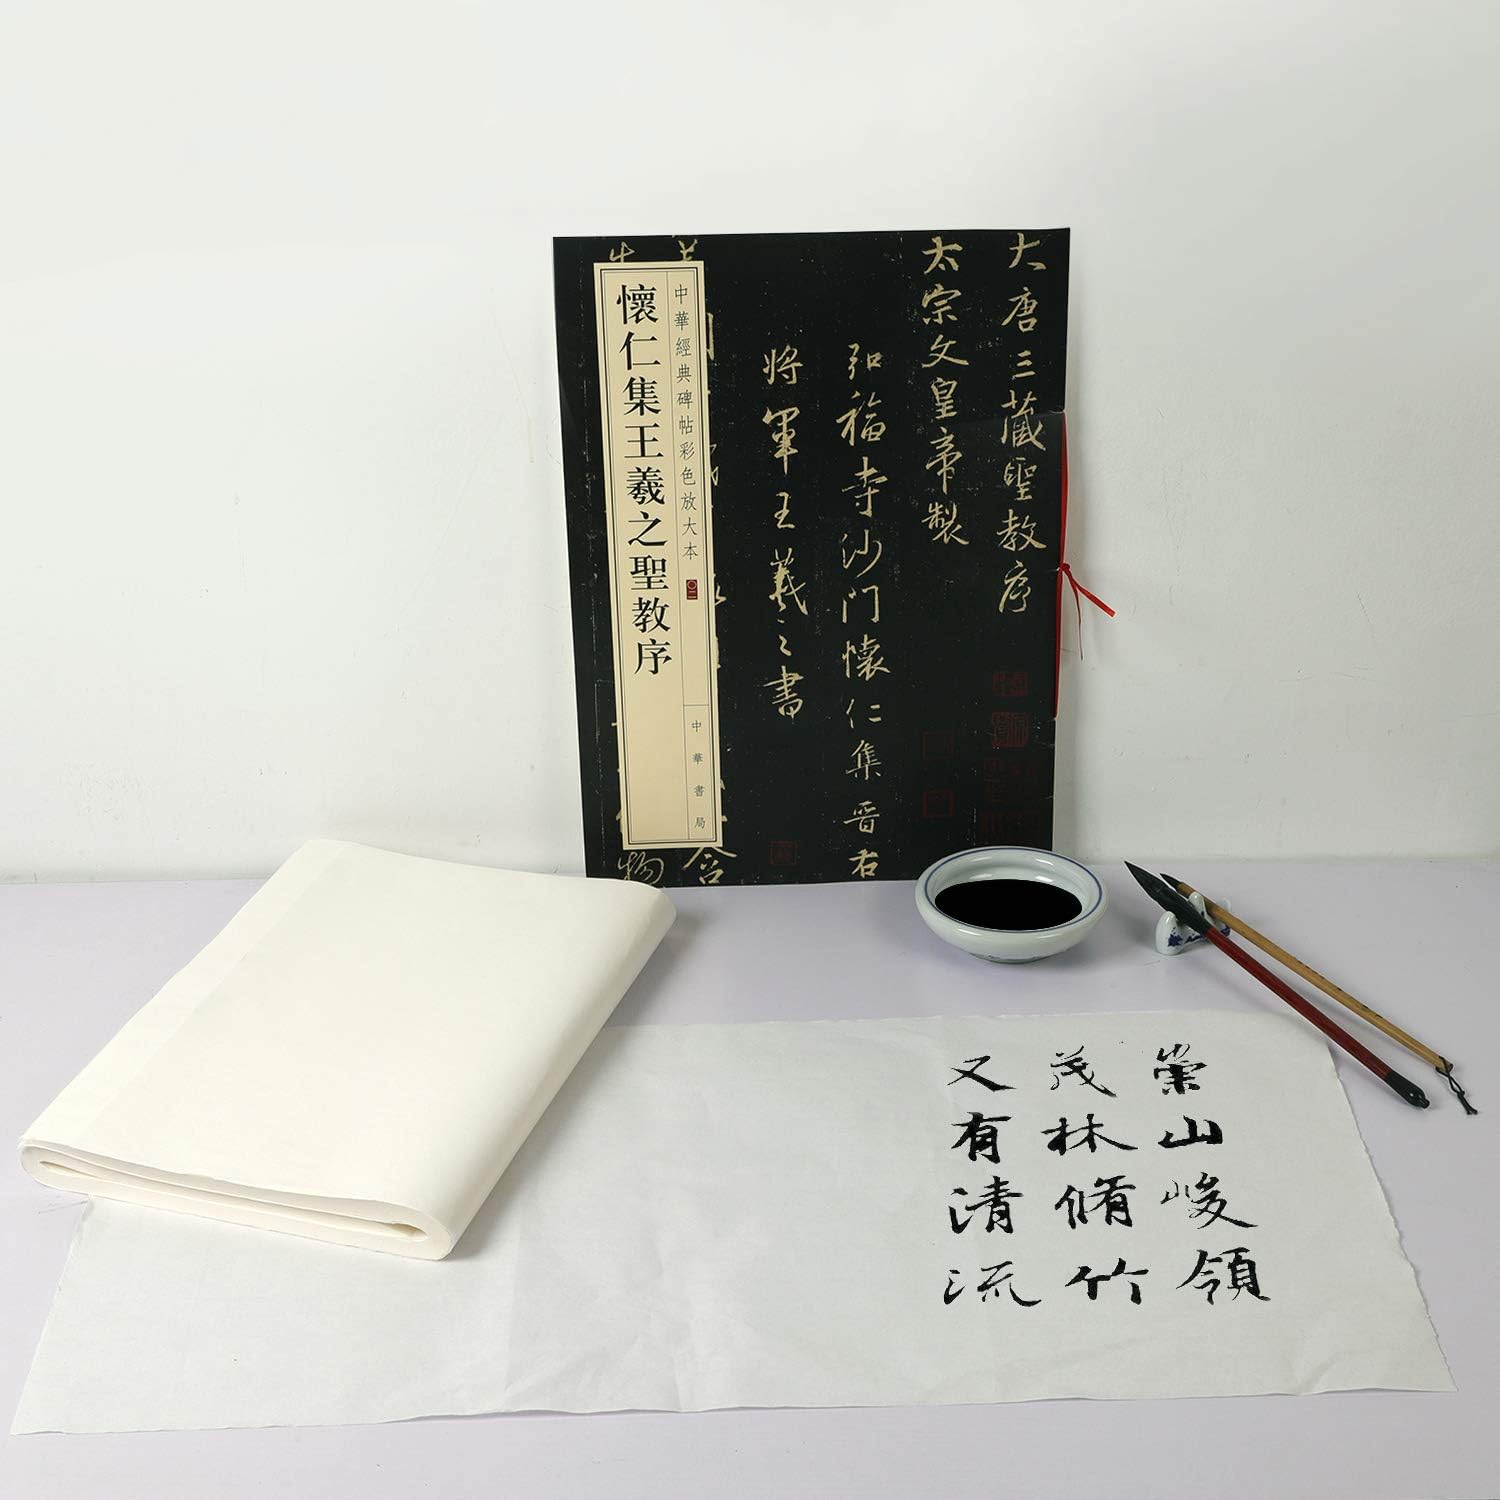 大唐三藏聖教序
太宗文皇帝製
弘福寺沙門懷仁集晉右
將軍王羲之書
中華經典碑帖彩色放大本
〇二
中華書局
懷仁集王羲之聖教序
崇山峻領
茂林脩竹
又有清流